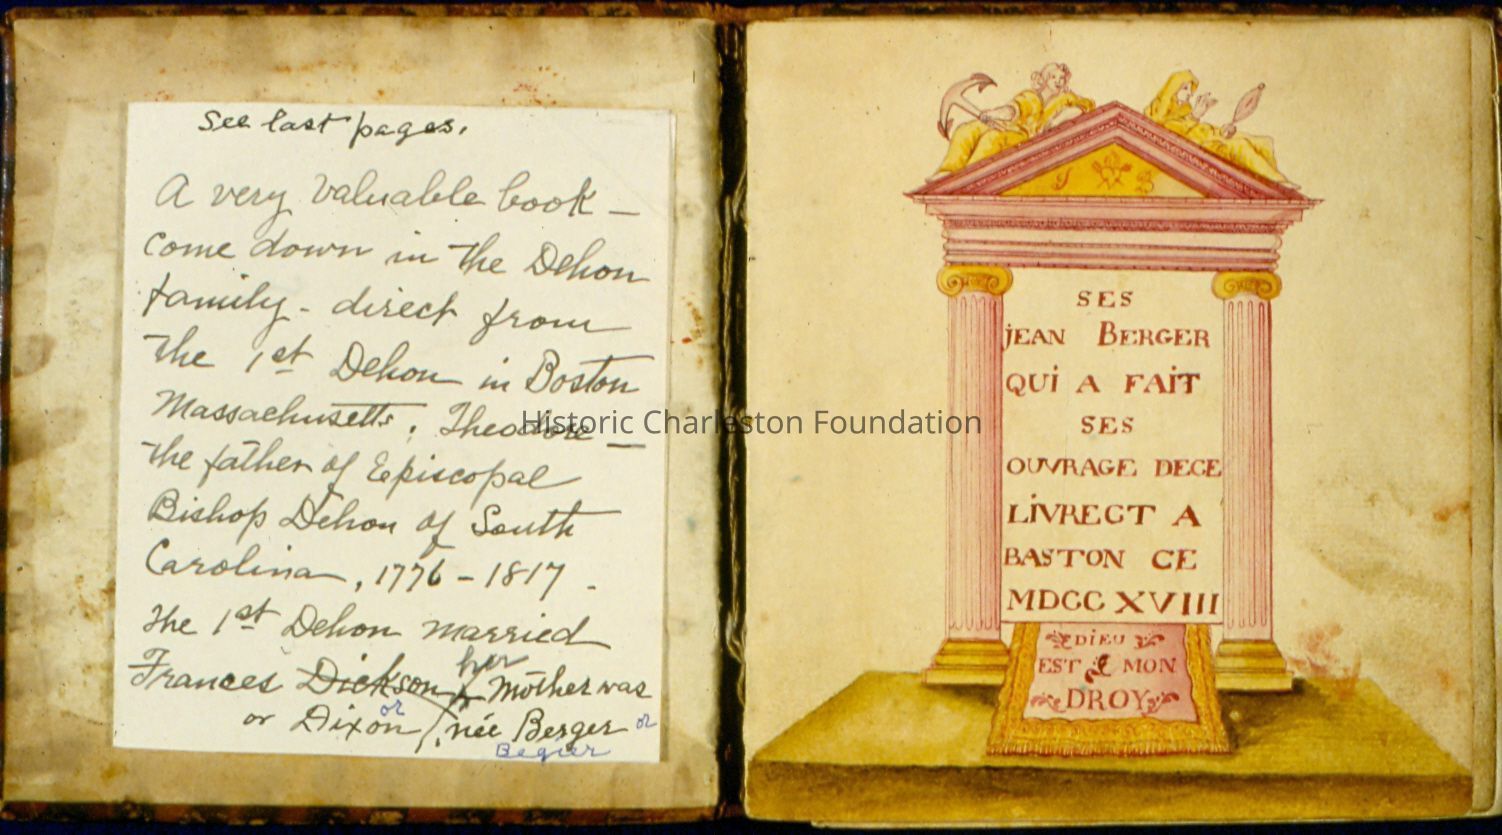 See last pages.
A very valuable book —
come down in the Dehon
family - direct from
the 1st Dehon in Boston
Massachusetts. Theodore —
the father of Episcopal
Bishop Dehon of South
Carolina, 1776 - 1817 .
The 1st Dehon married
her
Frances Dickson Mother was
or Dixon or / née Berger or
Begier
J B
SES
jEAN BERGER
QUi A FAiT
SES
OUVRAGE DECE
LiVREGT A
BASTON CE
MDCC XVIII
DIEU
EST MON
DROY
Historic Charleston Foundation